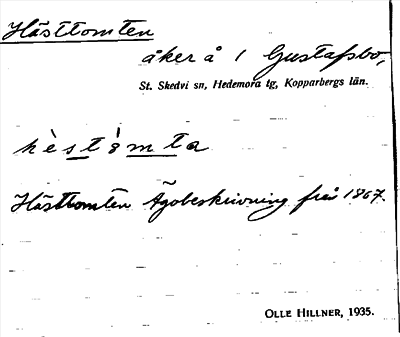 Hästtomten
åker å 1 Gustafsbo,
St. Skedvi sn, Hedemora tg, Kopparbergs län.
hèstòmta
Hästtomten Ägobeskrivning från 1867.
OLLE HILLNER, 1935.